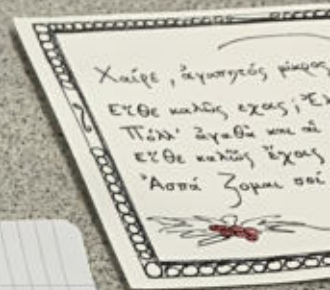 Χαίρε, ἀγαπητός μίκρος
Εἴθε καλῶς ἔχοις, Ἐλ
Πόλλ' ἀγαθὰ και αἱ
εἴθε καλῶς ἔχοις
Ἀσπά ζομαι σοί